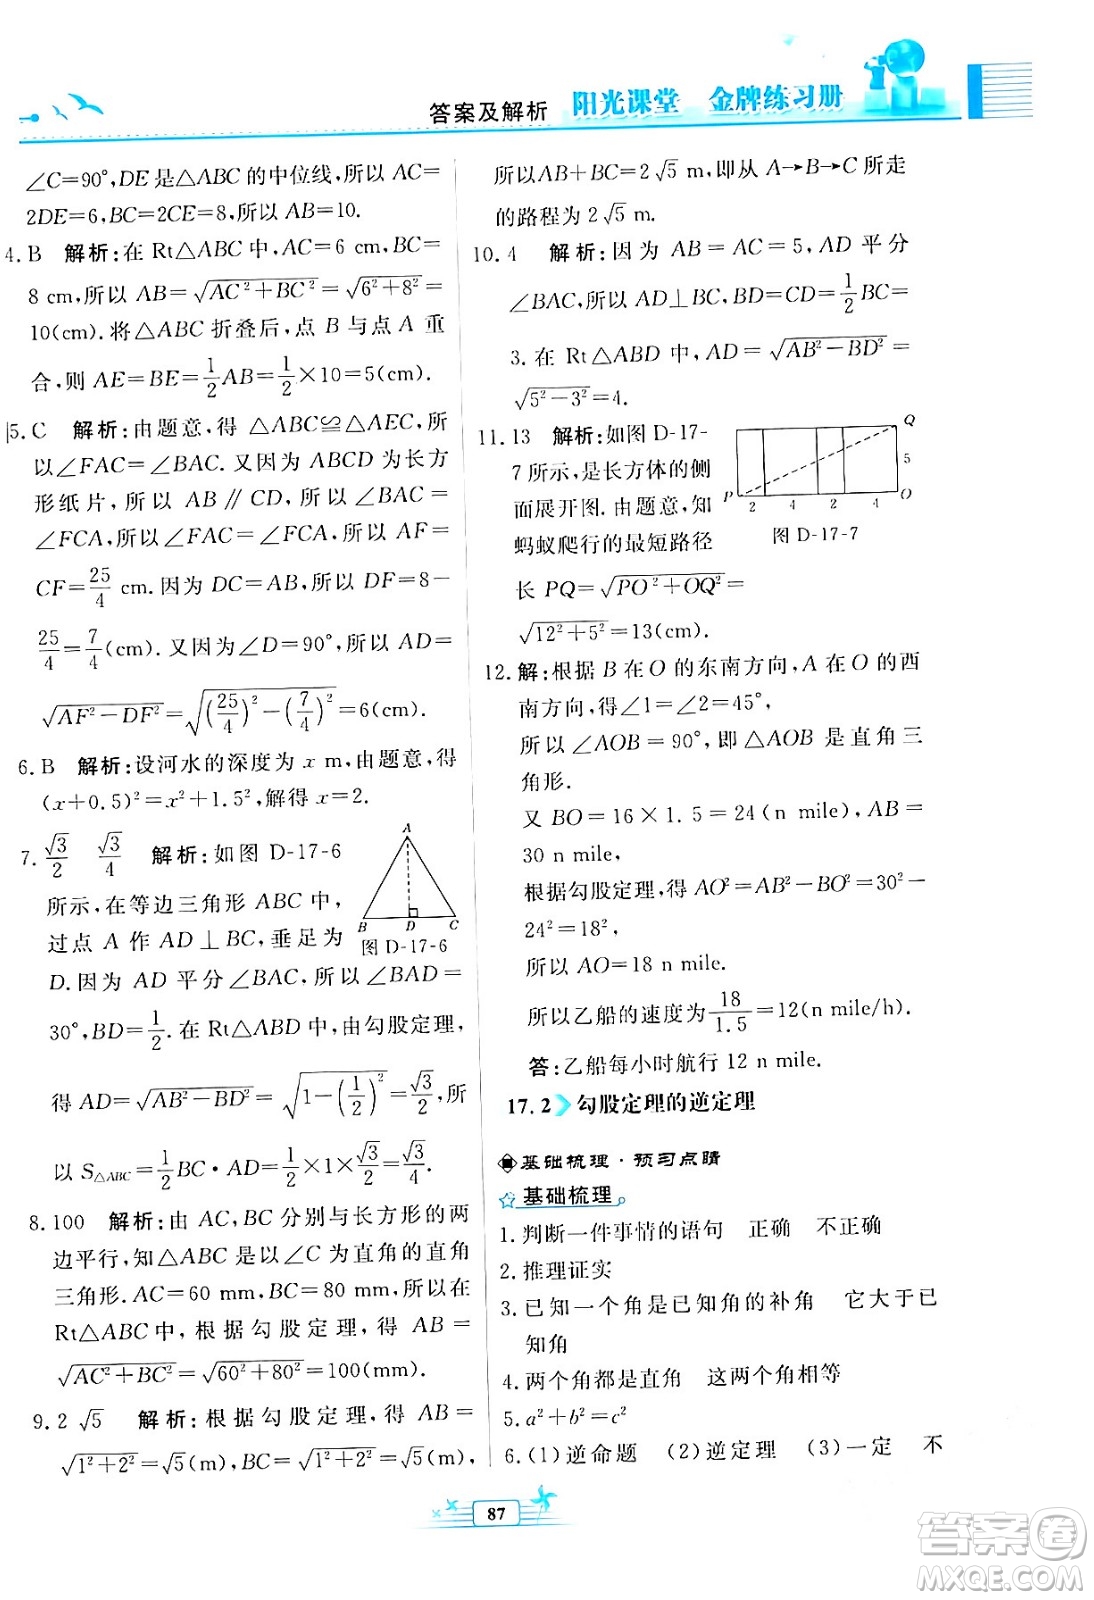 答案及解析 阳光课堂 金牌练习册
∠C=90°,DE是△ABC的中位线,所以 AC=
2DE=6,BC=2CE=8,所以 AB=10.
4. B 解析:在 Rt△ABC 中,AC=6 cm,BC=
8 cm,所以 AB=√(AC²+BC²)=√(6²+8²)=
10(cm). 将△ABC 折叠后,点 B 与点 A 重
合,则 AE=BE=1/2AB=1/2×10=5(cm).
5. C 解析:由题意,得 △ABC≌△AEC,所
以∠FAC=∠BAC. 又因为 ABCD 为长方
形纸片,所以 AB∥CD,所以∠BAC=
∠FCA,所以∠FAC=∠FCA,所以 AF=
CF=25/4 cm. 因为 DC=AB,所以 DF=8-
25/4=7/4(cm). 又因为∠D=90°,所以 AD=
√(AF²-DF²)=√((25/4)²-(7/4)²)=6(cm).
6. B 解析:设河水的深度为 x m,由题意,得
(x+0.5)²=x²+1.5²,解得 x=2.
7. √3/2 √3/4 解析:如图 D-17-6
所示,在等边三角形 ABC 中,
过点 A 作 AD⊥BC,垂足为
D. 因为 AD 平分∠BAC,所以∠BAD=
30°,BD=1/2. 在 Rt△ABD 中,由勾股定理,
得 AD=√(AB²-BD²)=√(1²-(1/2)²)=√3/2,所
以 S△ABC=1/2BC·AD=1/2×1×√3/2=√3/4.
A
B D C
图 D-17-6
8. 100 解析:由 AC,BC 分别与长方形的两
边平行,知△ABC 是以∠C 为直角的直角
三角形. AC=60 mm,BC=80 mm,所以在
Rt△ABC 中,根据勾股定理,得 AB=
√(AC²+BC²)=√(60²+80²)=100(mm).
9. 2√5 解析:根据勾股定理,得 AB=
√(1²+2²)=√5(m),BC=√(1²+2²)=√5(m),
所以AB+BC=2√5 m,即从 A→B→C 所走
的路程为 2√5 m.
10. 4 解析:因为 AB=AC=5,AD 平分
∠BAC,所以 AD⊥BC,BD=CD=1/2BC=
3. 在 Rt△ABD 中,AD=√(AB²-BD²)=
√(5²-3²)=4.
11. 13 解析:如图 D-17-
7 所示,是长方体的侧
面展开图. 由题意,知
蚂蚁爬行的最短路径
长 PQ=√(PO²+OQ²)=
√(12²+5²)=13(cm).
Q
5
P 2 4 2 4 O
图 D-17-7
12. 解:根据 B 在 O 的东南方向,A 在 O 的西
南方向,得∠1=∠2=45°,
所以∠AOB=90°,即△AOB 是直角三
角形.
又 BO=16×1.5=24(n mile),AB=
30 n mile,
根据勾股定理,得 AO²=AB²-BO²=30²-
24²=18²,
所以 AO=18 n mile.
所以乙船的速度为18/1.5=12(n mile/h).
答:乙船每小时航行 12 n mile.
17.2 勾股定理的逆定理
基础梳理·预习点睛
基础梳理
1. 判断一件事情的语句 正确 不正确
2. 推理证实
3. 已知一个角是已知角的补角 它大于已
知角
4. 两个角都是直角 这两个角相等
5. a²+b²=c²
6. (1)逆命题 (2)逆定理 (3)一定 不
87
答案卷
MXQE.COM